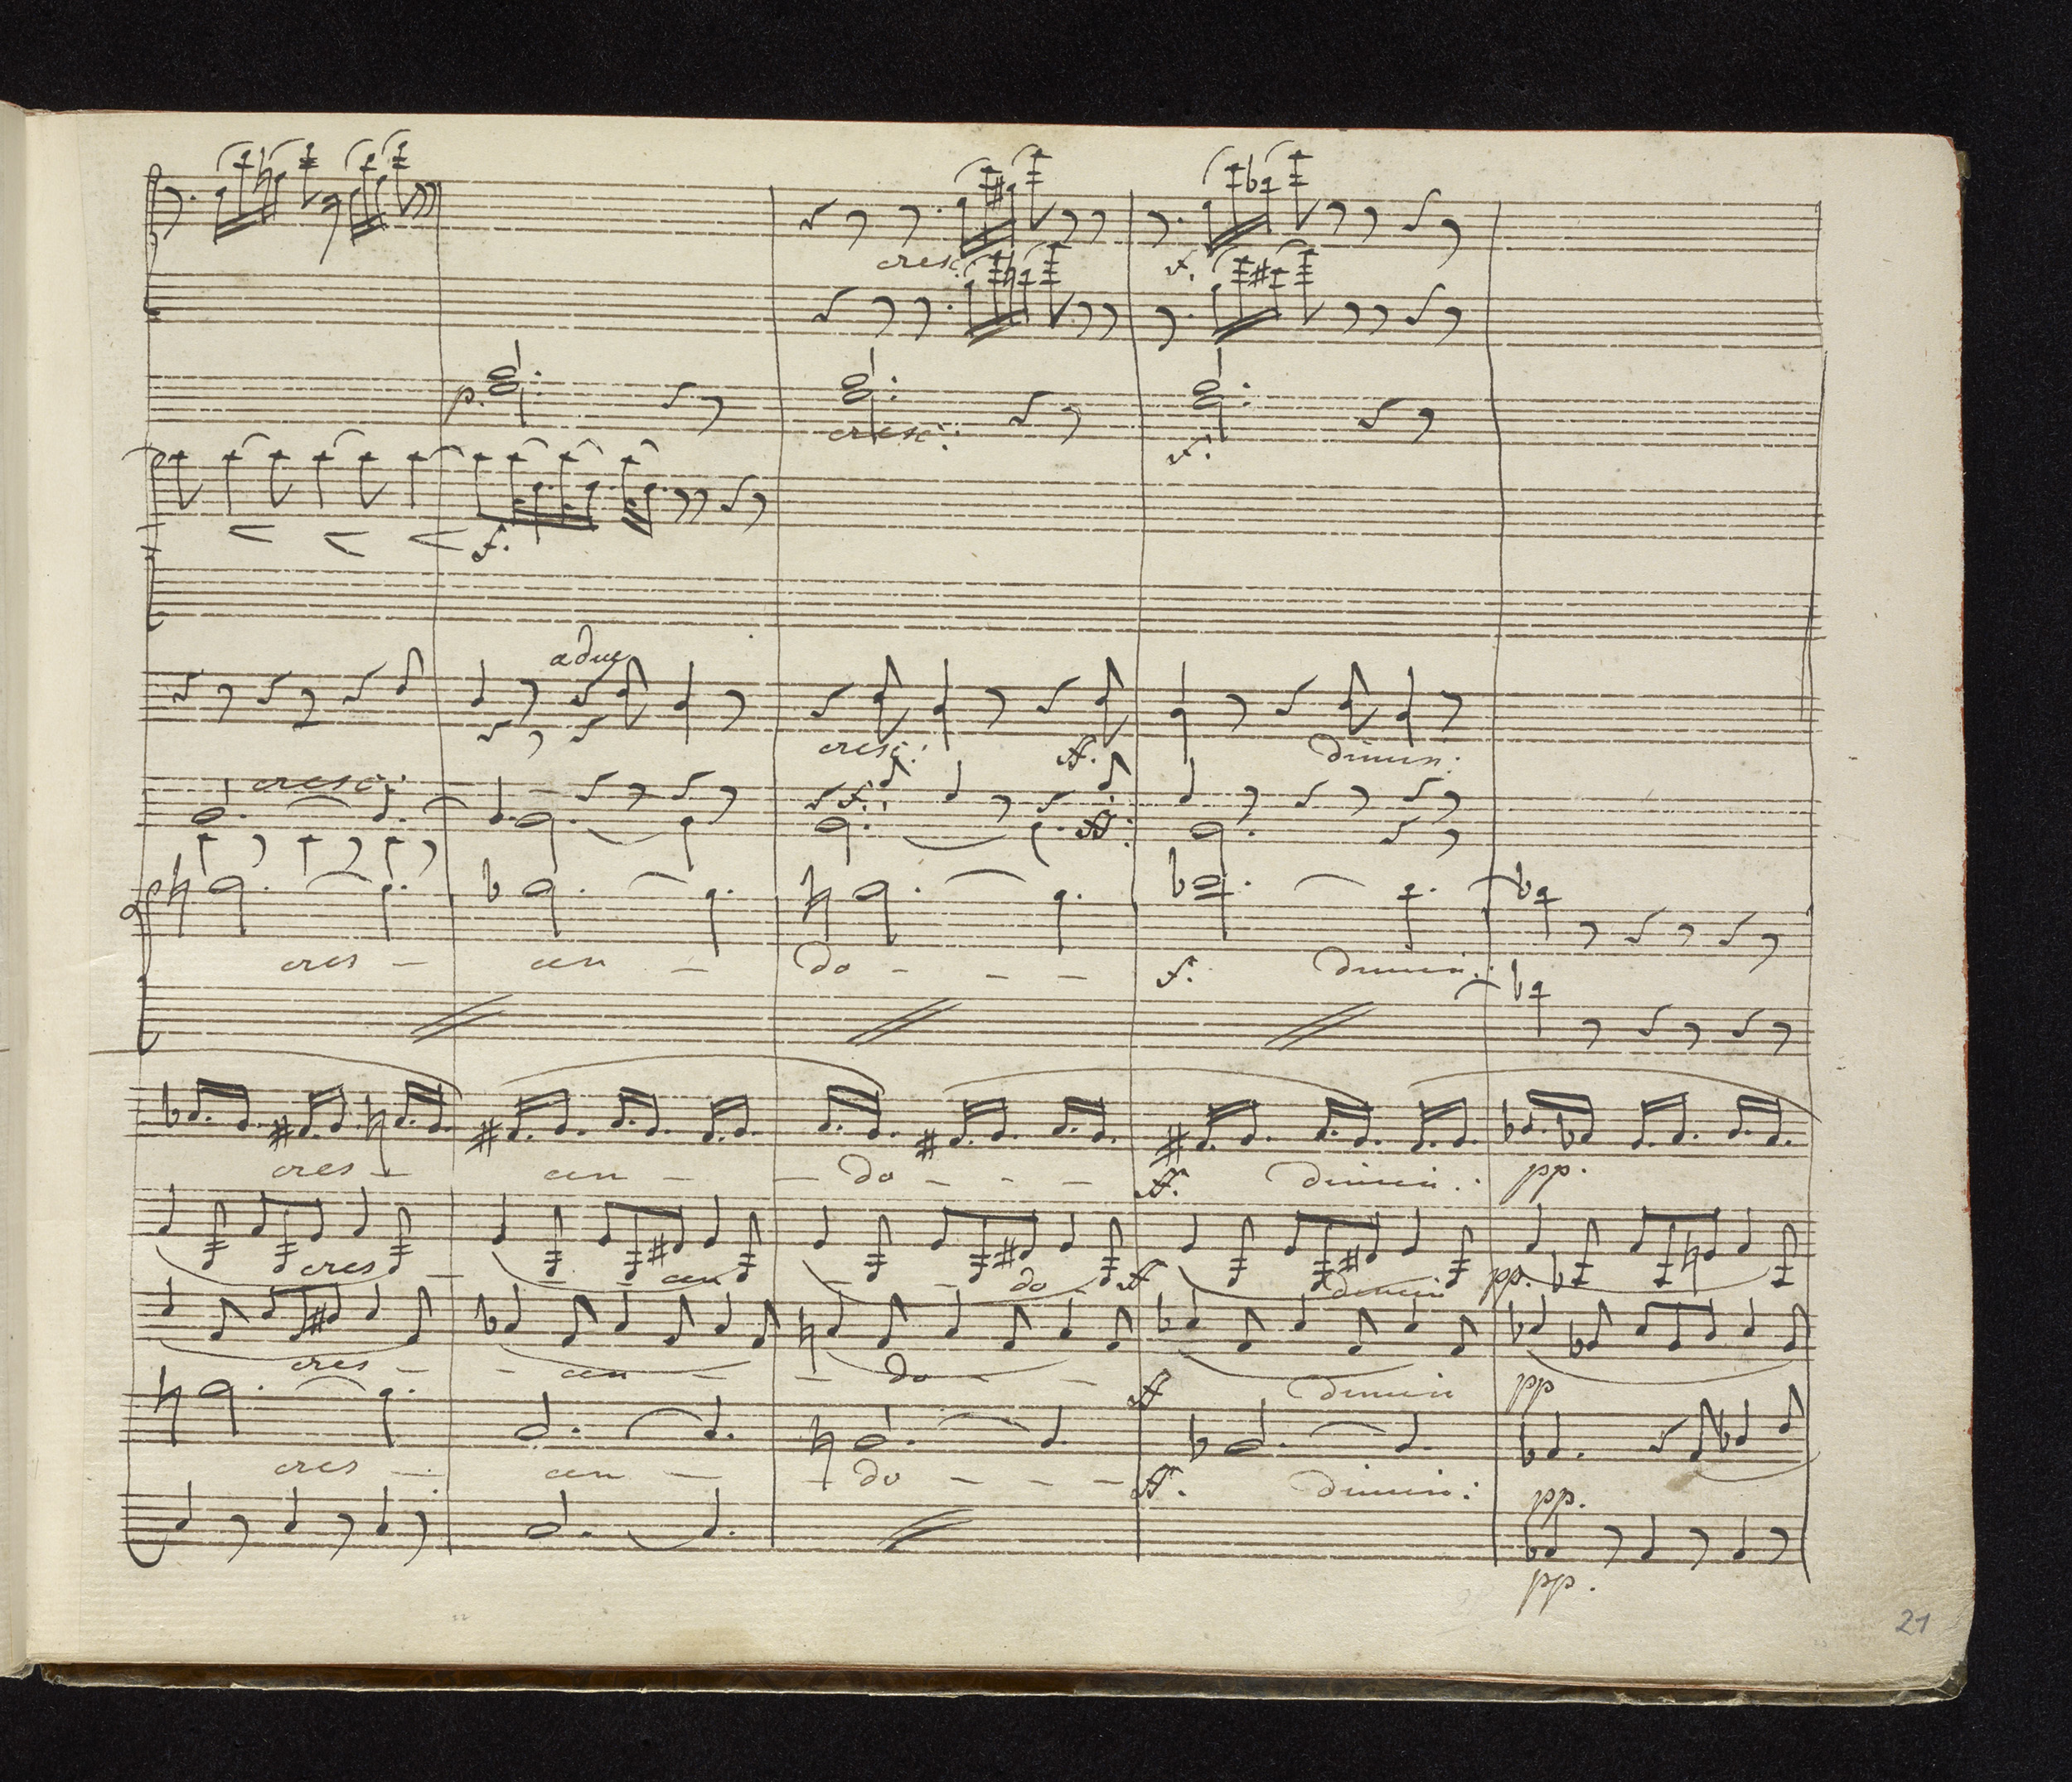 cresc: f.
p. cresc: f.
f.
a due
cresc: ff. dimin:
cresc: f. ff:
cres – cen – do - - - f. dimin:
cres – cen – – do - - - ff. dimin. pp.
cres – – cen – – do ff dimin pp.
cres – – cen – – do – – ff dimin pp
cres – cen – – do – – – ff. dimin: pp.
pp.
21